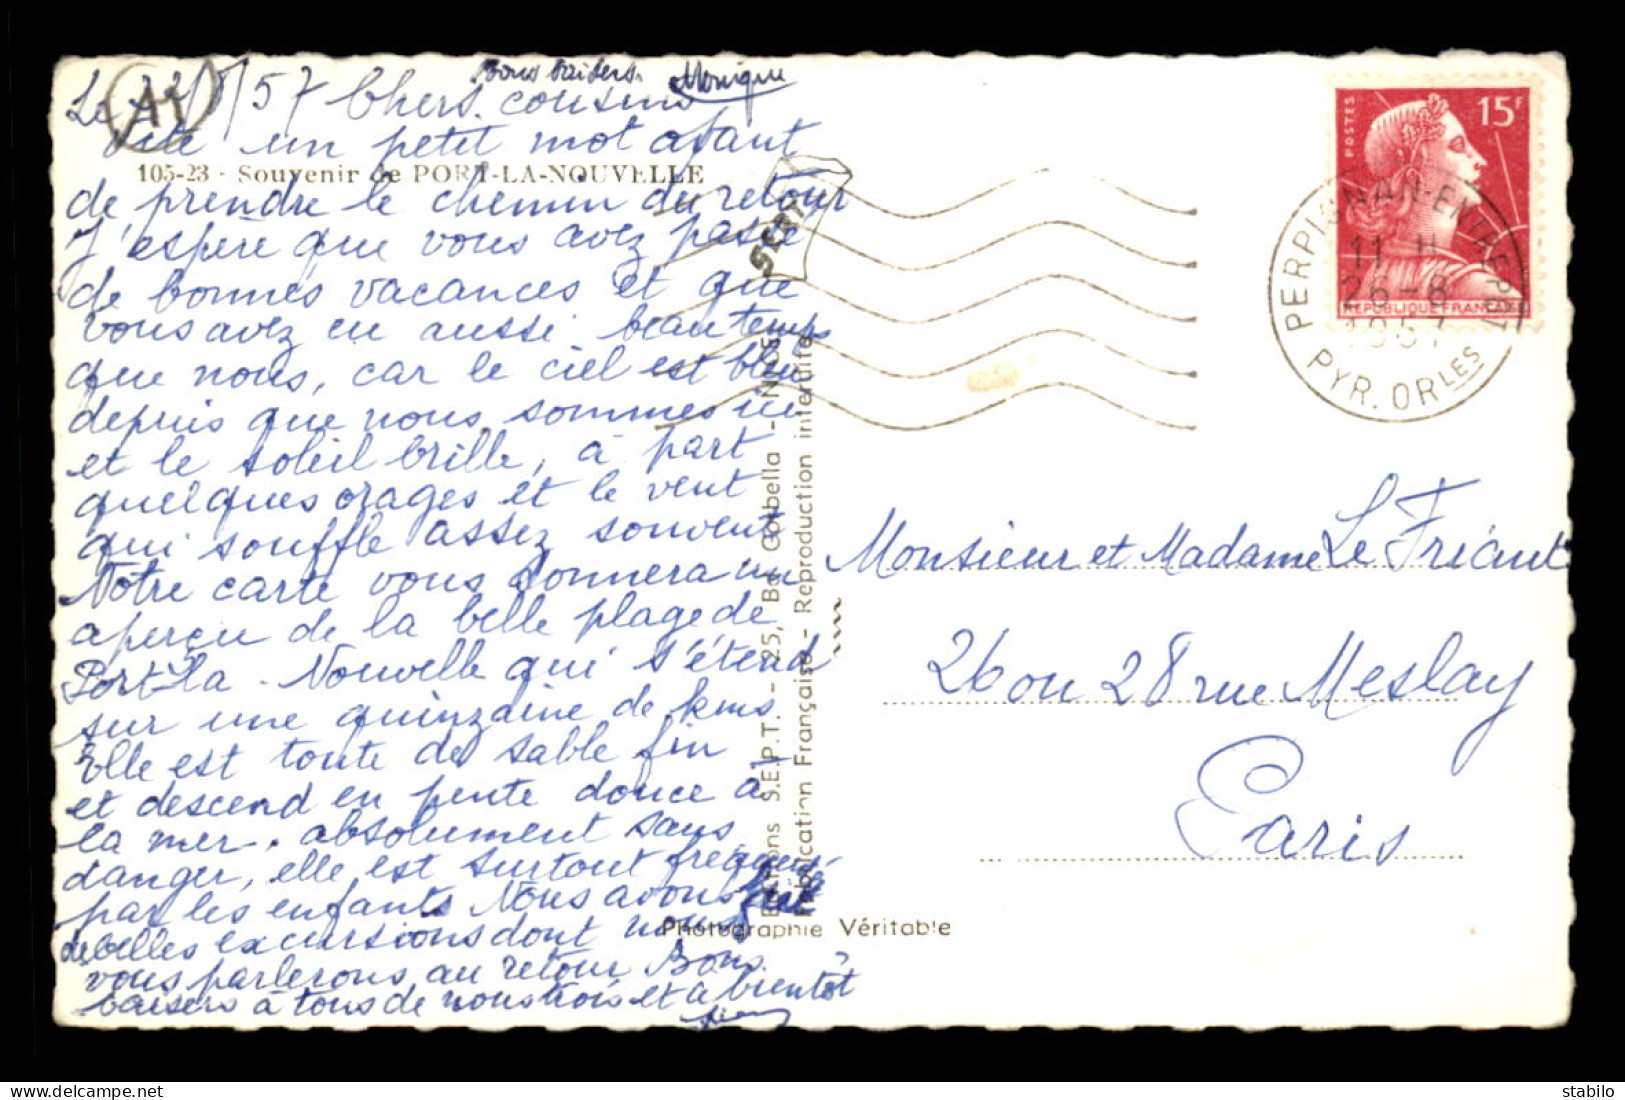 Bons baisers. Monique
Le /57 Chers cousins
Vite un petit mot avant
105-23 - Souvenir de PORT-LA-NOUVELLE
de prendre le chemin du retour
J'espère que vous avez passé
de bonnes vacances et que
vous avez eu aussi beau temps
que nous, car le ciel est bleu
depuis que nous sommes ici
et le soleil brille, à part
quelques orages et le vent
qui souffle assez souvent
Notre carte vous donnera un
aperçu de la belle plage de
Port-la-Nouvelle qui s'étend
sur une quinzaine de kms
Elle est toute de sable fin
et descend en pente douce à
la mer. absolument sans
danger, elle est surtout fréquenté
par les enfants Nous avons fait
de belles excursions dont nous
vous parlerons au retour Bons
baisers à tous de nous trois et à bientôt
11
SEPT
Editions S.E.P.T. - 25, Bd Gorbella - NICE
Fabrication Française - Reproduction interdite
Photographie Véritable
POSTES
15F
REPUBLIQUE FRANÇAISE
PERPIGNAN-ENTREPOT
11 H
26-8
1957
PYR. ORLES
Monsieur et Madame Le Friant
26 ou 28 rue Meslay
Paris
stabilo
delcampe.net